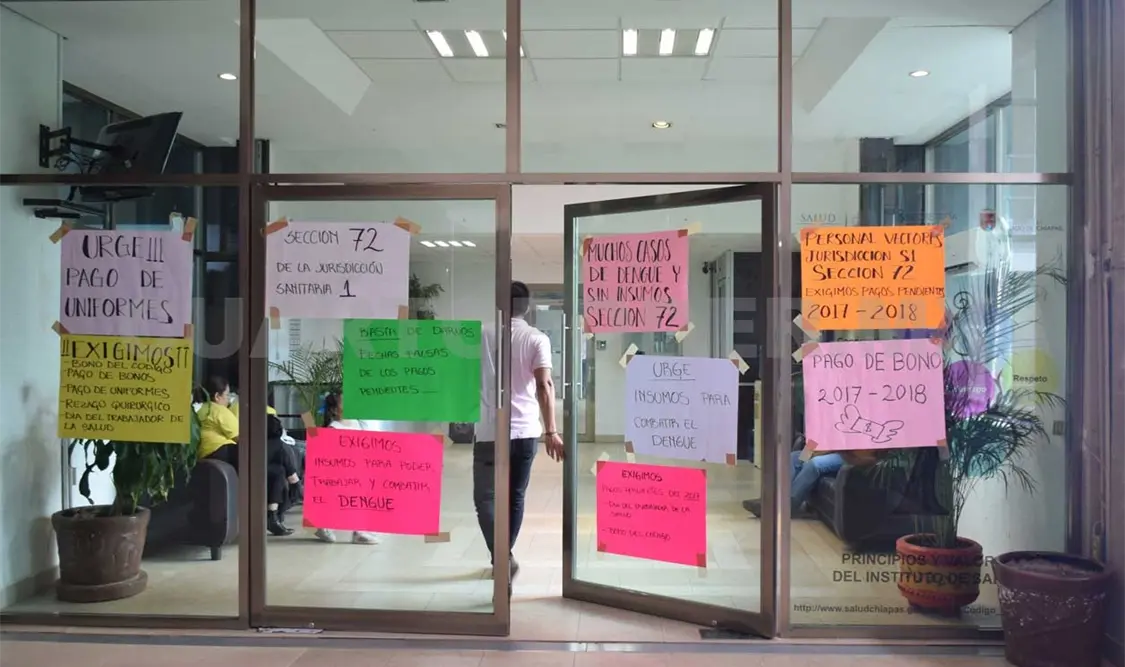 URGE!!!
PAGO DE
UNIFORMES
!!EXIGIMOS!!
- BONO DEL CODIGO
- PAGO DE BONOS
- PAGO DE UNIFORMES
- REZAGO QUIRURGICO
- DIA DEL TRABAJADOR DE
LA SALUD
SECCION 72
DE LA JURISDICCIÓN
SANITARIA 1
BASTA DE DARNOS
FECHAS FALSAS
DE LOS PAGOS
PENDIENTES
EXIGIMOS
INSUMOS PARA PODER
TRABAJAR Y COMBATIR
EL DENGUE
MUCHOS CASOS
DE DENGUE Y
SIN INSUMOS
SECCION 72
URGE
INSUMOS PARA
COMBATIR EL
DENGUE
EXIGIMOS
PAGOS PENDIENTES DEL
- DIA DEL TRABAJADOR DE LA
SALUD
- BONO DEL CODIGO
PERSONAL VECTORES
JURISDICCION S1
SECCION 72
EXIGIMOS PAGOS PENDIENTES
2017-2018
PAGO DE BONO
2017-2018
SALUD
CHIAPAS
Respeto
PRINCIPIOS Y VALOR
DEL INSTITUTO DE SA
http://www.saludchiapas.